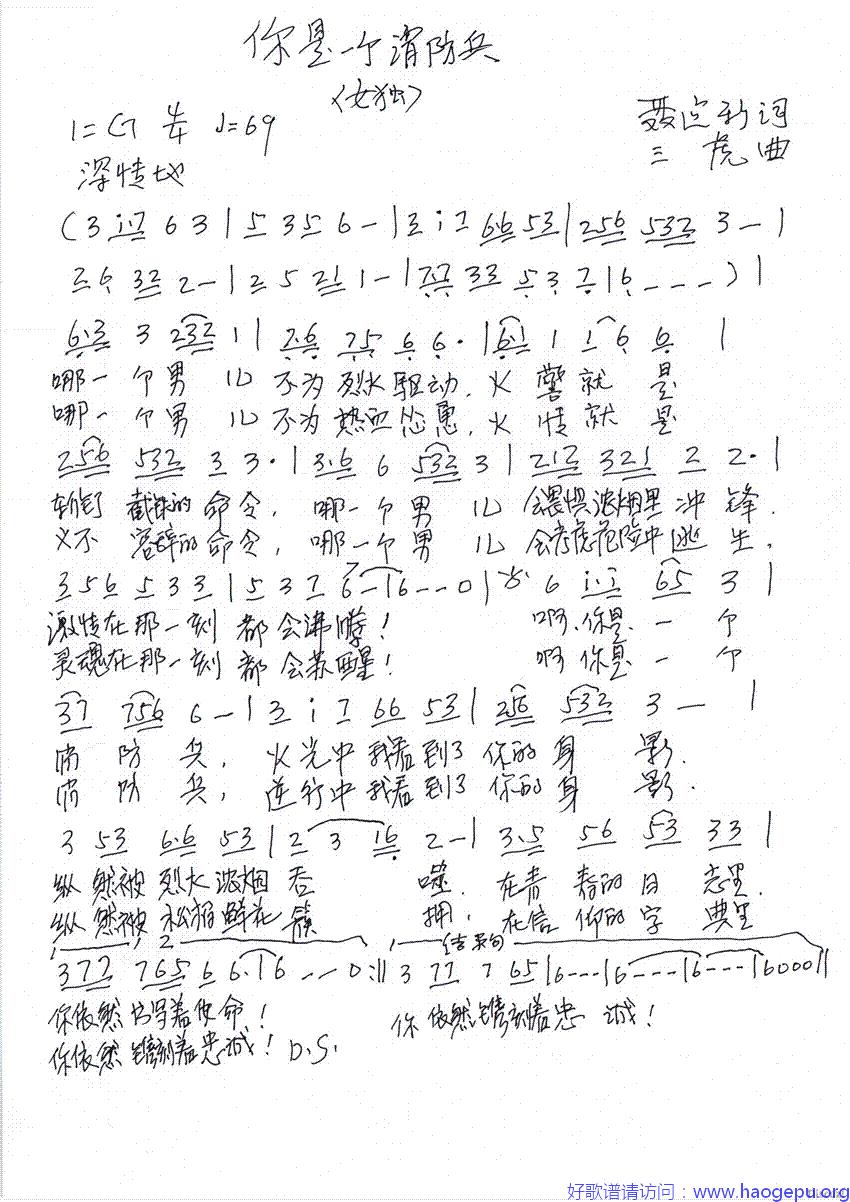 你是一个消防兵
〈女独〉
1=G 4/4 ♩=69
聂应新词
深情地
三虎曲
(3 i7 6 3 | 5 35 6 - | 3 i 7 6·6 53 | 256 532 3 - |
2·6 32 2 - | 2 5 21 1 - | 7·7 33 5 3 7 | 6 - - - ) |
6·3 3 232 1 | 7·6 75 6 6· | 6·1 1 1 6 6 |
哪一个男儿不为烈火驱动,火警就是
哪一个男儿不为热血怂恿,火情就是
256 532 3 3· | 3·6 6 532 3 | 212 321 2 2· |
斩钉截铁的命令,哪一个男儿会畏惧浓烟里冲锋.
义不容辞的命令,哪一个男儿会考虑危险中逃生,
356 5 33 | 5 3 7 6 - | 6 - - 0 | 6 i·i 65 3 |
激情在那一刻都会沸腾!啊,你是一个
灵魂在那一刻都会苏醒!啊你是一个
37 756 6 - | 3 i 7 66 53 | 256 532 3 - |
消防兵,火光中我看到了你的身影.
消防兵,逆行中我看到了你的身影.
3 53 6·6 53 | 2 3 16 2 - | 3·5 56 53 33 |
纵然被烈火浓烟吞噬.在青春的日志里.
纵然被松柏鲜花簇拥,在信仰的字典里
1 2 结束句
377 765 6 6· | 6 - - 0 :|| 3 77 7 65 | 6 - - - | 6 - - - | 6 - - - | 6000 ||
你依然书写着使命!你依然镌刻着忠诚!
你依然镌刻着忠诚!D.S.
好歌谱请访问:www.haogepu.org